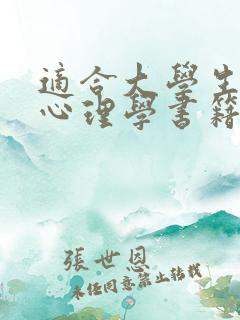 適合大學生
心理學書籍
張世恩
未經同意禁止轉載